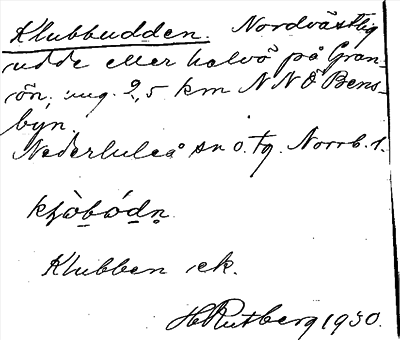 Klubbudden. Nordvästlig
udde eller halvö på Gran-
ön, ung. 2,5 km NNÖ Bens-
byn.
Nederluleå sn o. tg. Norrb. l.
Klubben ek.
H Rutberg 1930.